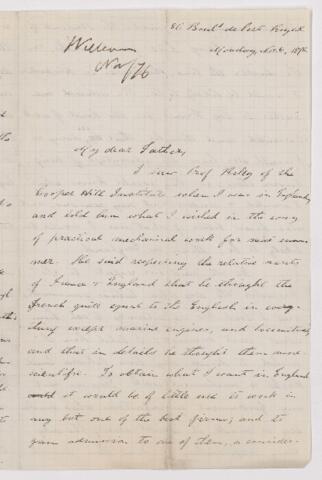 86 Boulᵈ de Port Royal
Monday, Nov. 6, 1876
William
Nov/76
My dear Father,
I saw Prof Reley of the
Cooper Hill Institute when I was in England,
and told him what I wished in the way
of practical mechanical work for next sum-
mer. He said respecting the relative merits
of France & England that he thought the
French quite equal to the English in every-
thing except marine engines, and locomotives,
and that in details he thought them more
scientific. To obtain what I want in England
it would be of little use to work in
any but one of the best firms; and to
gain admission to one of them, a consider-